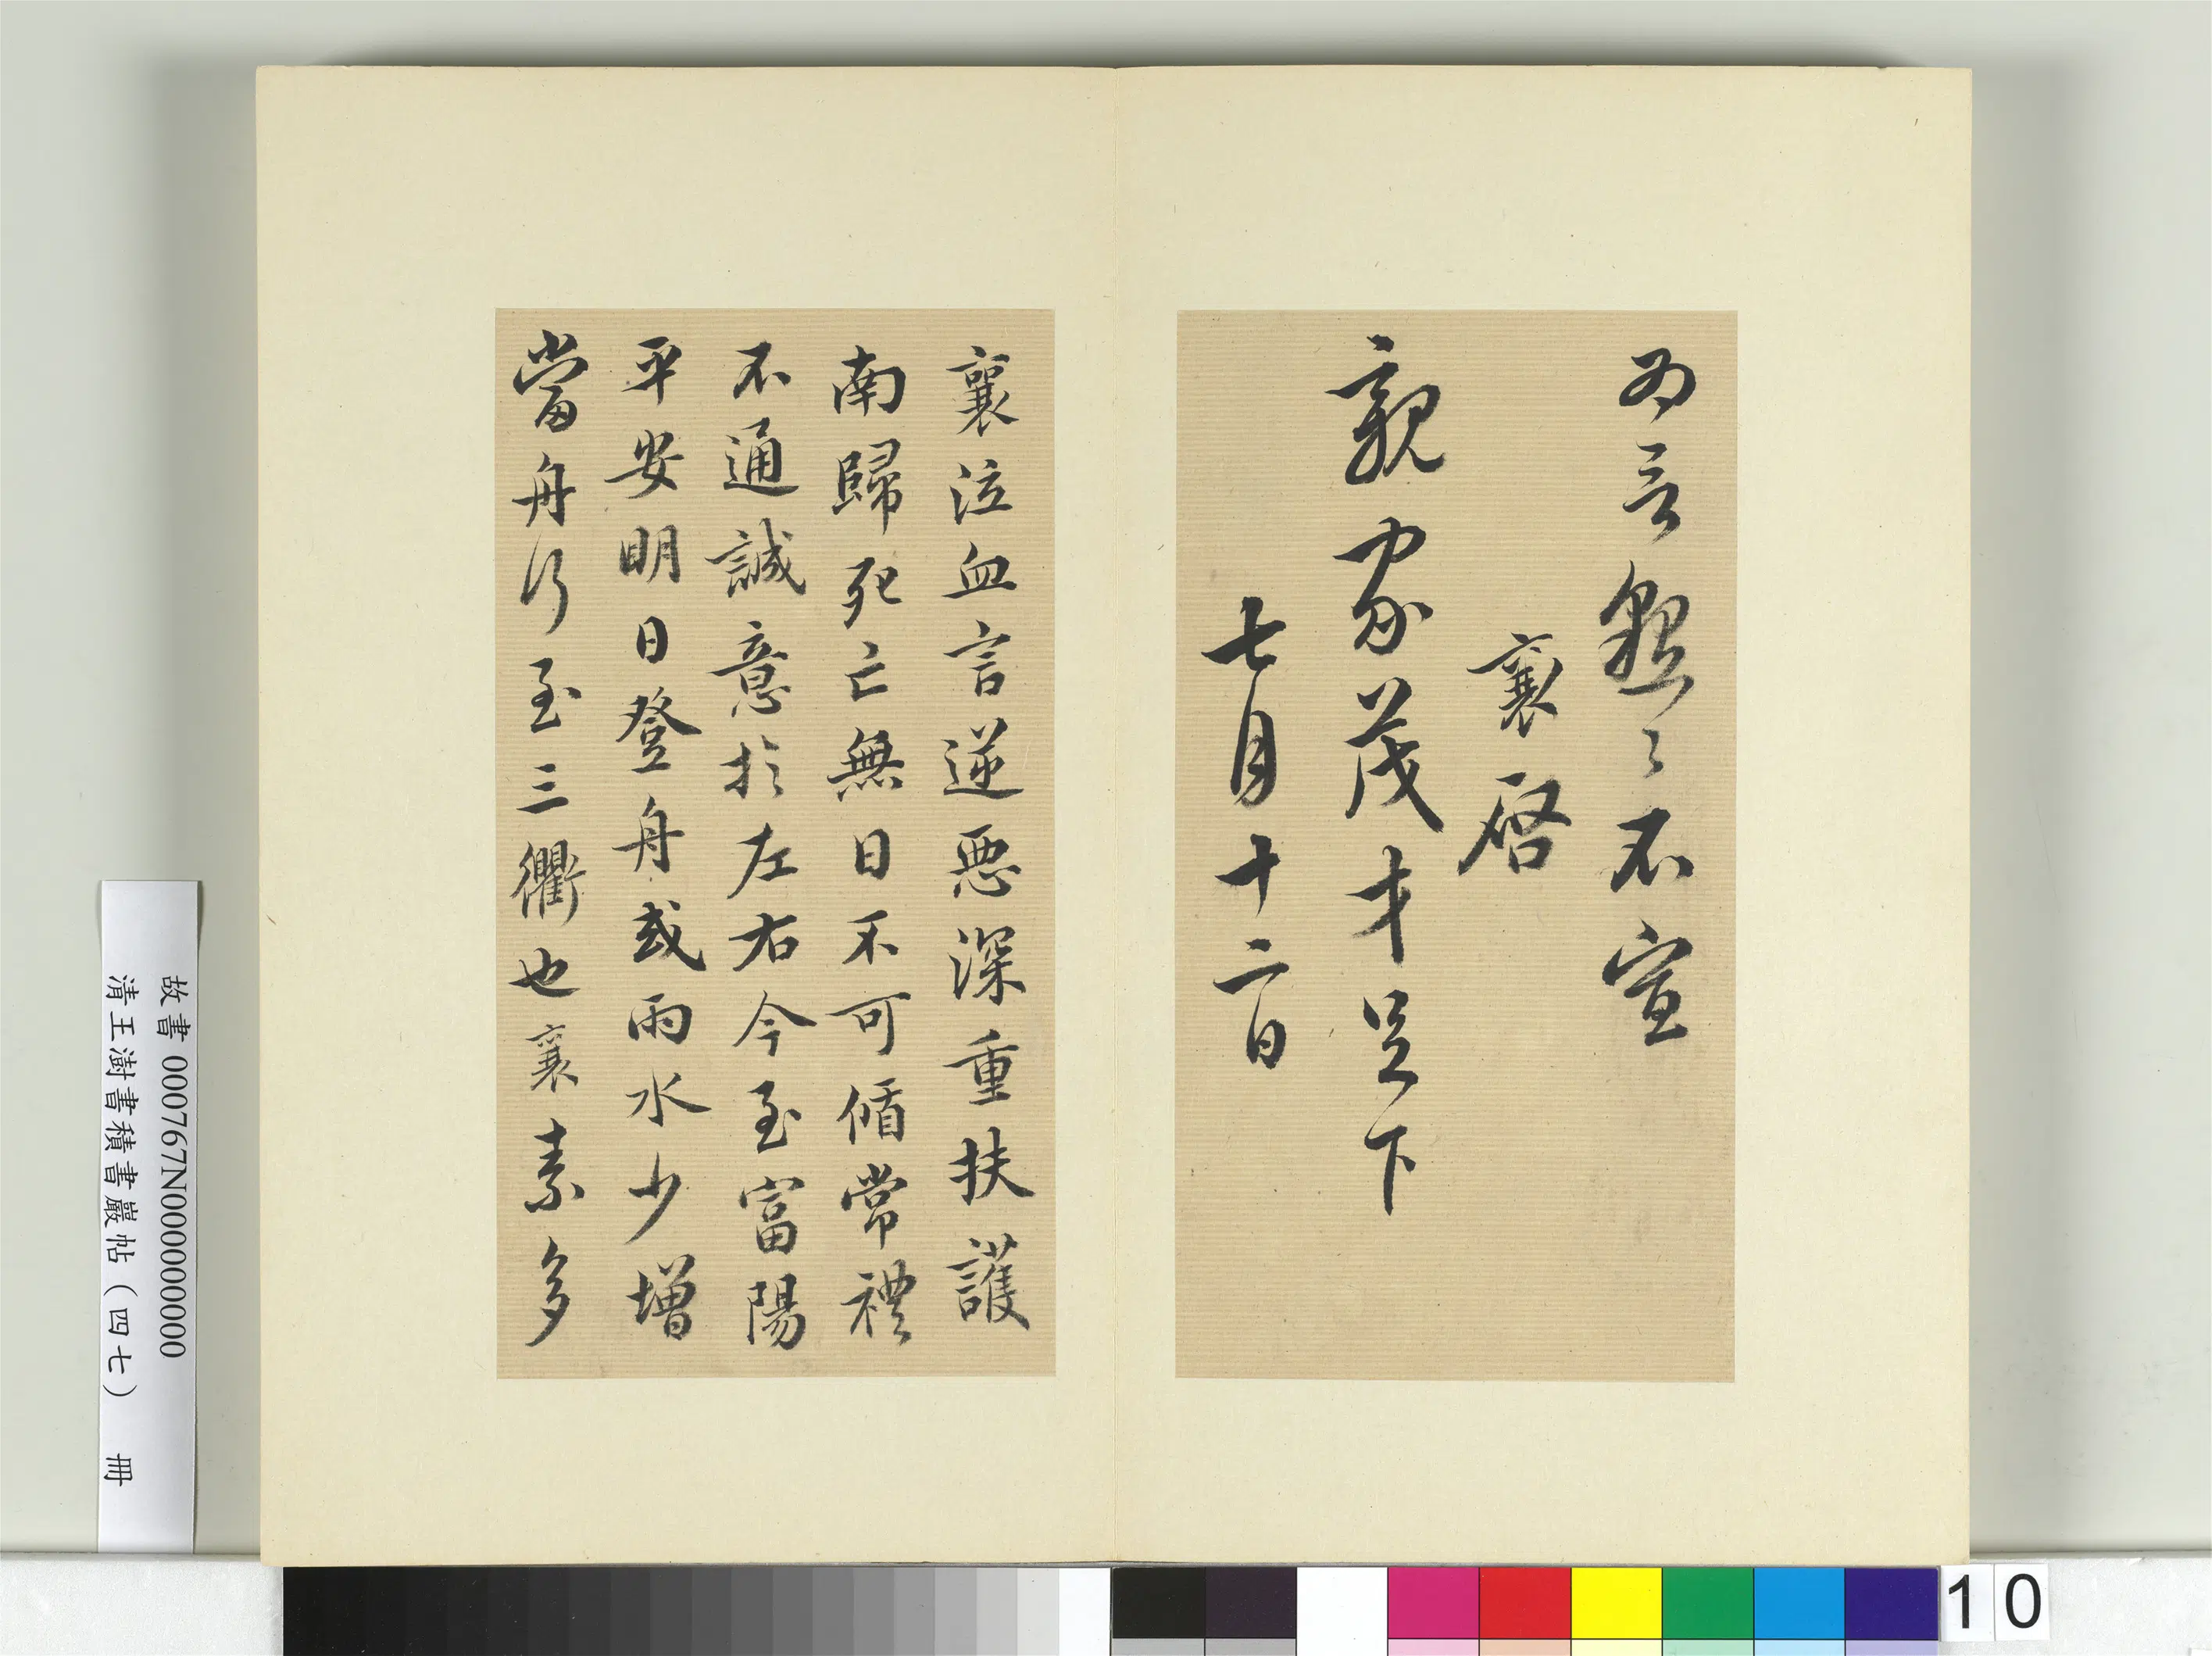 为言懇〻不宣
襄啓
親家茂才足下
七月十二日
襄泣血言逆惡深重扶護
南歸死亡無日不可循常禮
不通誠意於左右今至富陽
平安明日登舟或雨水少增
當舟行至三衢也襄素多
故書 000767N000000000
清王澍書積書巖帖(四七) 冊
10